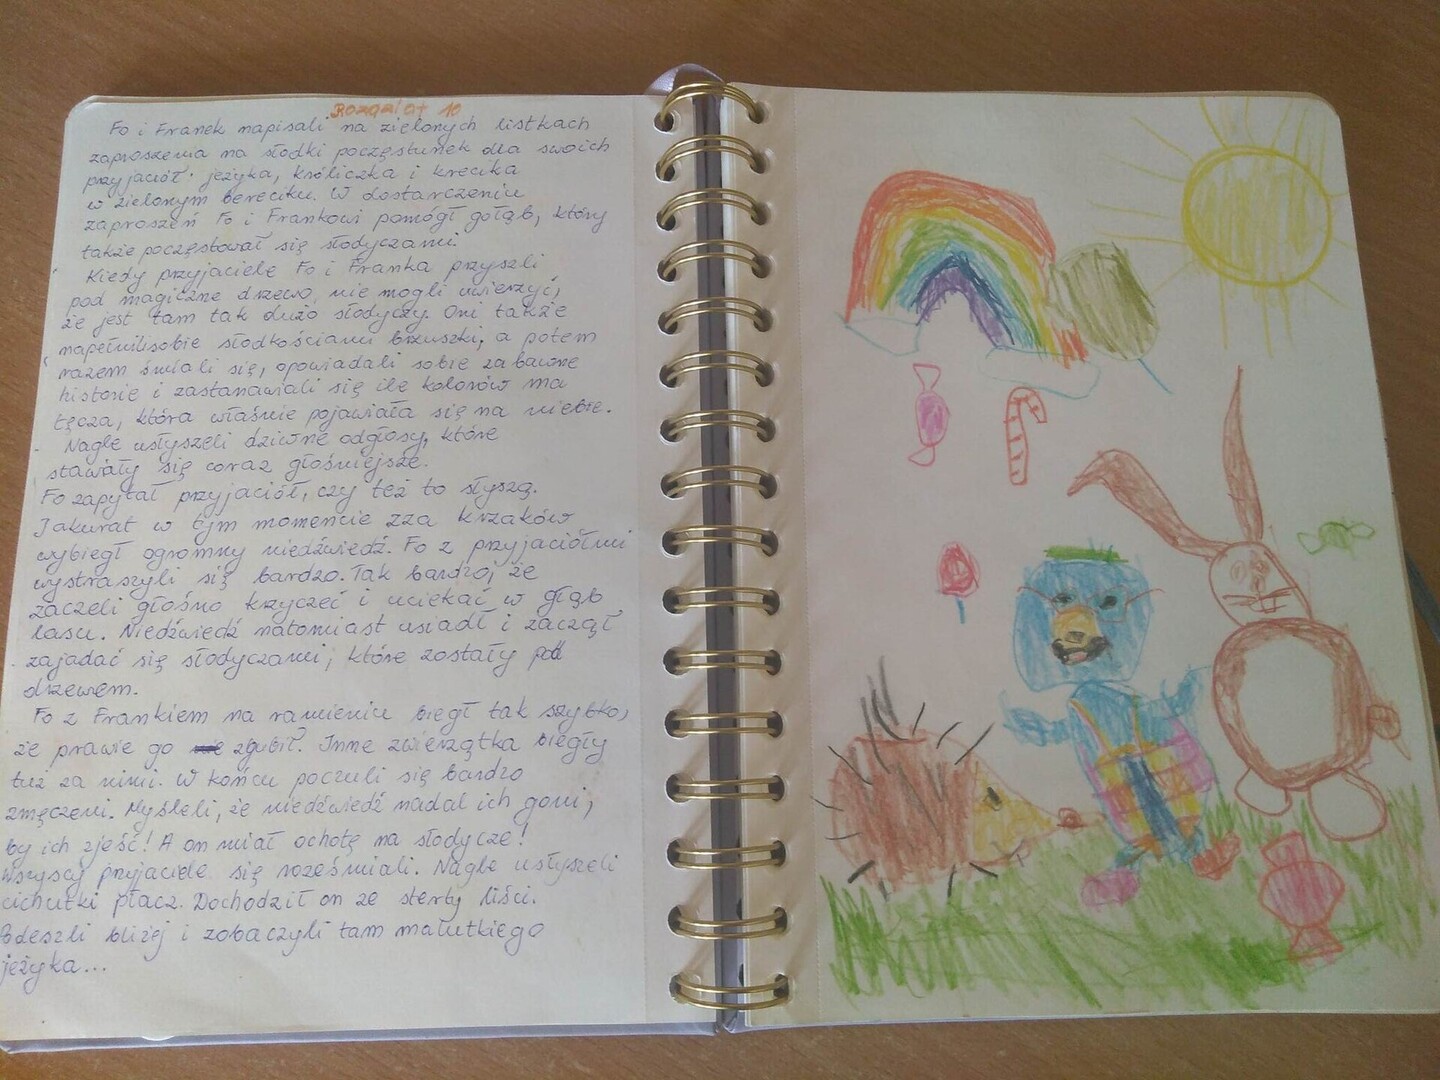 Rozdział 10
Fo i Franek napisali na zielonych listkach
zaproszenia na słodki poczęstunek dla swoich
przyjaciół: jeżyka, króliczka i krecika
w zielonym bereciku. W dostarczeniu
zaproszeń Fo i Frankowi pomógł gołąb, który
także poczęstował się słodyczami.
Kiedy przyjaciele Fo i Franka przyszli
pod magiczne drzewo, nie mogli uwierzyć,
że jest tam tak dużo słodyczy. Oni także
napełnili sobie słodkościami brzuszki, a potem
razem śmiali się, opowiadali sobie zabawne
historie i zastanawiali się ile kolorów ma
tęcza, która właśnie pojawiała się na niebie.
Nagle usłyszeli dziwne odgłosy, które
stawały się coraz głośniejsze.
Fo zapytał przyjaciół, czy też to słyszą.
I akurat w tym momencie zza krzaków
wybiegł ogromny niedźwiedź. Fo z przyjaciółmi
wystraszyli się bardzo. Tak bardzo, że
zaczeli głośno krzyczeć i uciekać w głąb
lasu. Niedźwiedź natomiast usiadł i zaczął
zajadać się słodyczami, które zostały pod
drzewem.
Fo z Frankiem na ramieniu biegł tak szybko,
że prawie go zgubił. Inne zwierzątka biegły
tuż za nimi. W końcu poczuli się bardzo
zmęczeni. Myśleli, że niedźwiedź nadal ich goni,
by ich zjeść! A on miał ochotę na słodycze!
Wszyscy przyjaciele się roześmiali. Nagle usłyszeli
cichutki płacz. Dochodził on ze sterty liści.
Podeszli bliżej i zobaczyli tam malutkiego
jeżyka...